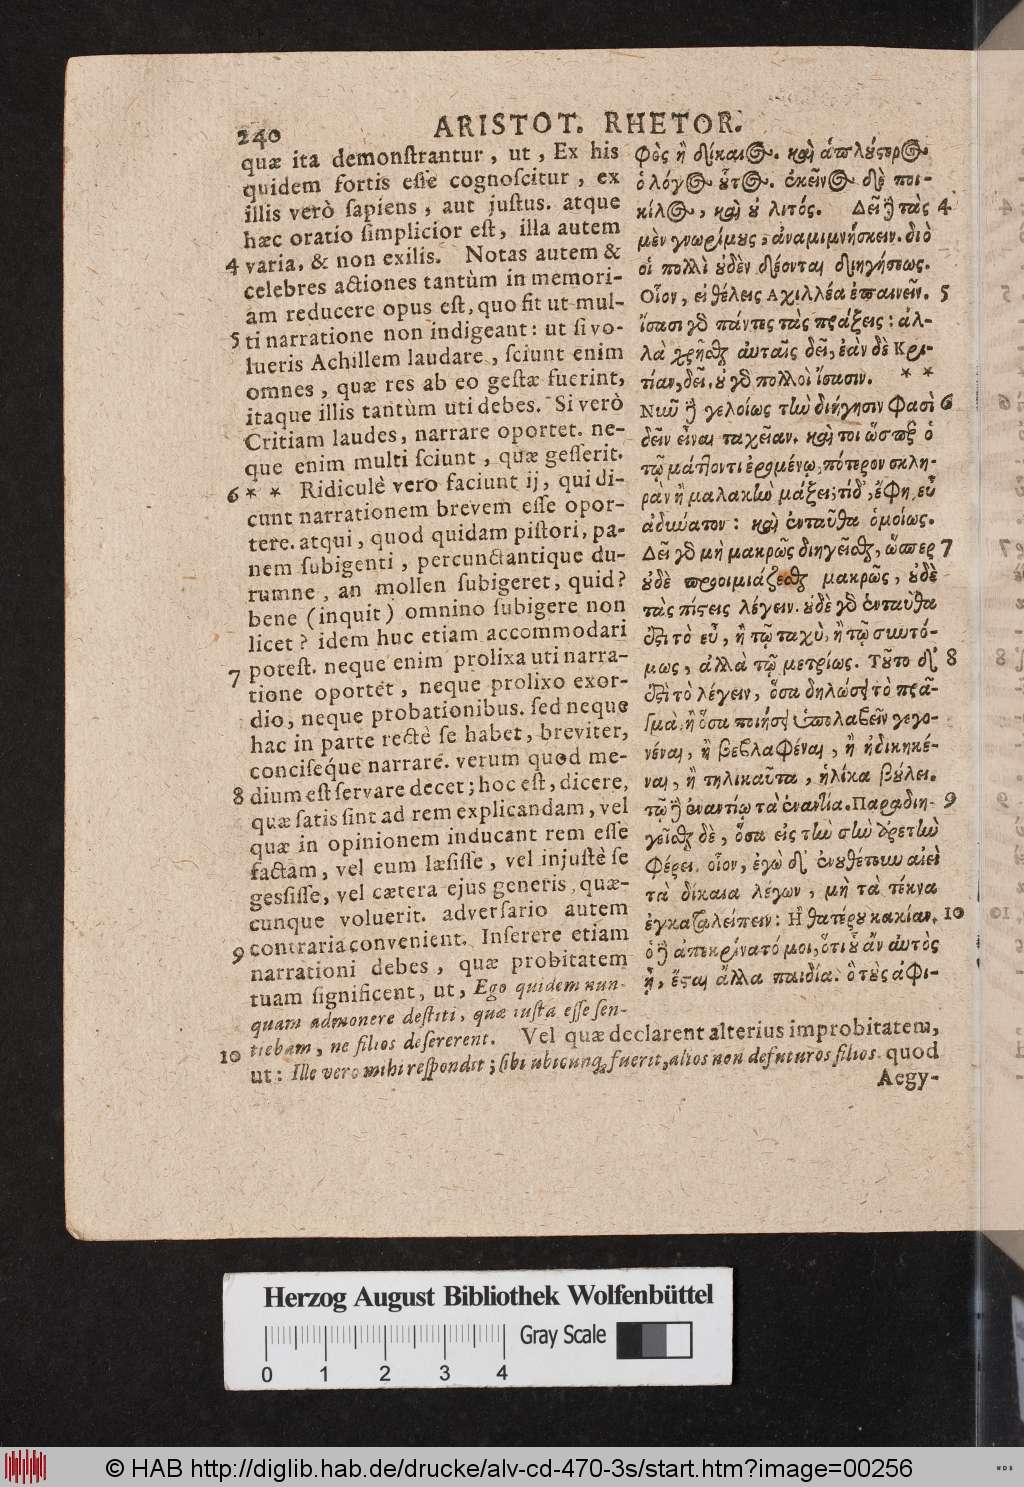 240
ARISTOT. RHETOR.
quæ ita demonſtrantur, ut, Ex his
quidem fortis eſſe cognoſcitur, ex
illis verò ſapiens, aut juſtus. atque
hæc oratio ſimplicior eſt, illa autem
4 varia, & non exilis. Notas autem &
celebres actiones tantùm in memori-
am reducere opus eſt, quo fit ut mul-
5 ti narratione non indigeant: ut ſi vo-
lueris Achillem laudare, ſciunt enim
omnes, quæ res ab eo geſtæ fuerint,
itaque illis tantùm uti debes. Si verò
Critiam laudes, narrare oportet. ne-
que enim multi ſciunt, quæ geſſerit.
6 * * Ridiculè vero faciunt ij, qui di-
cunt narrationem brevem eſſe opor-
tere. atqui, quod quidam piſtori, pa-
nem ſubigenti, percunctantique du-
rumne, an mollen ſubigeret, quid?
bene (inquit) omnino ſubigere non
licet? idem huc etiam accommodari
7 poteſt. neque enim prolixa uti narra-
tione oportet, neque prolixo exor-
dio, neque probationibus. ſed neque
hac in parte rectè ſe habet, breviter,
conciſeq́ue narrare. verum quod me-
8 dium eſt ſervare decet; hoc eſt, dicere,
quæ ſatis ſint ad rem explicandam, vel
quæ in opinionem inducant rem eſſe
factam, vel eum læſiſſe, vel injuſtè ſe
geſſiſſe, vel cætera ejus generis, quæ-
cunque voluerit. adverſario autem
9 contraria convenient. Inſerere etiam
narrationi debes, quæ probitatem
tuam ſignificent, ut, Ego quidem nun-
quam admonere deſtiti, quæ iuſta eſſe ſen-
tiebam, ne filios deſererent. Vel quæ declarent alterius improbitatem,
10 ut: Ille vero mihi reſpondit; ſibi ubicunq; fuerit, alios non defuturos filios. quod
Aegy-
φὸς ἢ δίκαιος. καὶ ἁπλούστερος
ὁ λόγος οὗτος. ἐκεῖνος δὲ ποι-
κίλος, καὶ οὐ λιτός. Δεῖ δὲ τὰς 4
μὲν γνωρίμους, ἀναμιμνήσκειν. διὸ
οἱ πολλὶ οὐδὲν δέονται διηγήσεως.
Οἷον, εἰ θέλεις Αχιλλέα ἐπαινεῖν. 5
ἴσασι γὰρ πάντες τὰς πράξεις: ἀλ-
λὰ χρῆσθαι αὐταῖς δεῖ, ἐὰν δὲ Κρι-
τίαν, δεῖ. οὐ γὰρ πολλοὶ ἴσασιν. * *
Νυῦ δὲ γελοίως τὴν διήγησιν φασὶ 6
δεῖν εἶναι ταχεῖαν. καὶ τοι ὥσπερ ὁ
τῷ μάττοντι ἐρομένῳ, πότερον σκλη-
ρὰν ἢ μαλακὴν μάξει; τίδ', ἔφη, εὖ
ἀδύνατον: καὶ ἐνταῦθα ὁμοίως.
Δεῖ γὰρ μὴ μακρῶς διηγεῖσθαι, ὥσπερ 7
οὐδὲ προοιμιάζεσθαι μακρῶς, οὐδὲ
τὰς πίστεις λέγειν. οὐδὲ γὰρ ἐνταῦθα
ἐστὶ τὸ εὖ, ἢ τῷ ταχὺ, ἢ τῷ συντό-
μως, ἀλλὰ τῷ μετρίως. Τοῦτο δ' 8
ἐστὶ τὸ λέγειν, ὅσα δηλώσει τὸ πρᾶ-
γμα, ἢ ὅσα ποιήσει ὑπολαβεῖν γεγο-
νέναι, ἢ βεβλαφέναι, ἢ ἠδικηκέ-
ναι, ἢ τηλικαῦτα, ἡλίκα βούλει.
τῷ δὲ ἐναντίῳ τὰ ἐναντία. Παραδιη- 9
γεῖσθαι δὲ, ὅσα εἰς τὴν σὴν ἀρετὴν
φέρει. οἷον, ἐγὼ δ' ἐνουθέτουν αἰεὶ
τὰ δίκαια λέγων, μὴ τὰ τέκνα
ἐγκαταλείπειν: Ἢ θατέρου κακίαν. 10
ὁ δὲ ἀπεκρίνατό μοι, ὅτι οὗ ἂν αὐτὸς
ᾖ, ἔσται ἄλλα παιδία. ὃ τοὺς ἀφι-
Herzog August Bibliothek Wolfenbüttel
Gray Scale
0 1 2 3 4
© HAB http://diglib.hab.de/drucke/alv-cd-470-3s/start.htm?image=00256